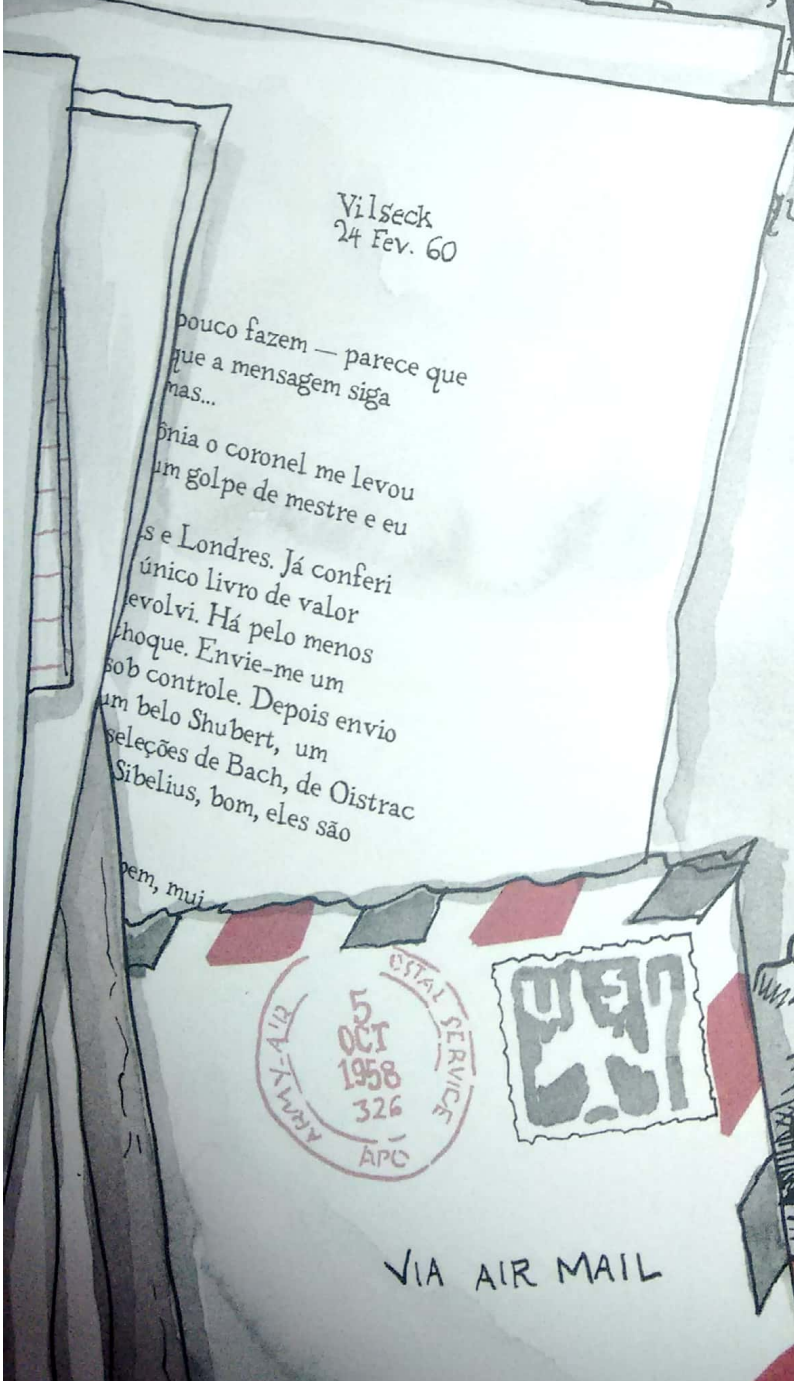 Vilseck
24 Fev. 60
pouco fazem — parece que
que a mensagem siga
mas...
ônia o coronel me levou
um golpe de mestre e eu
s e Londres. Já conferi
único livro de valor
evolvi. Há pelo menos
choque. Envie-me um
sob controle. Depois envio
um belo Shubert, um
seleções de Bach, de Oistrac
Sibelius, bom, eles são
bem, mui
OSTAL SERVICE
ARMY-AIR
5
OCT
1958
326
APO
VIA AIR MAIL